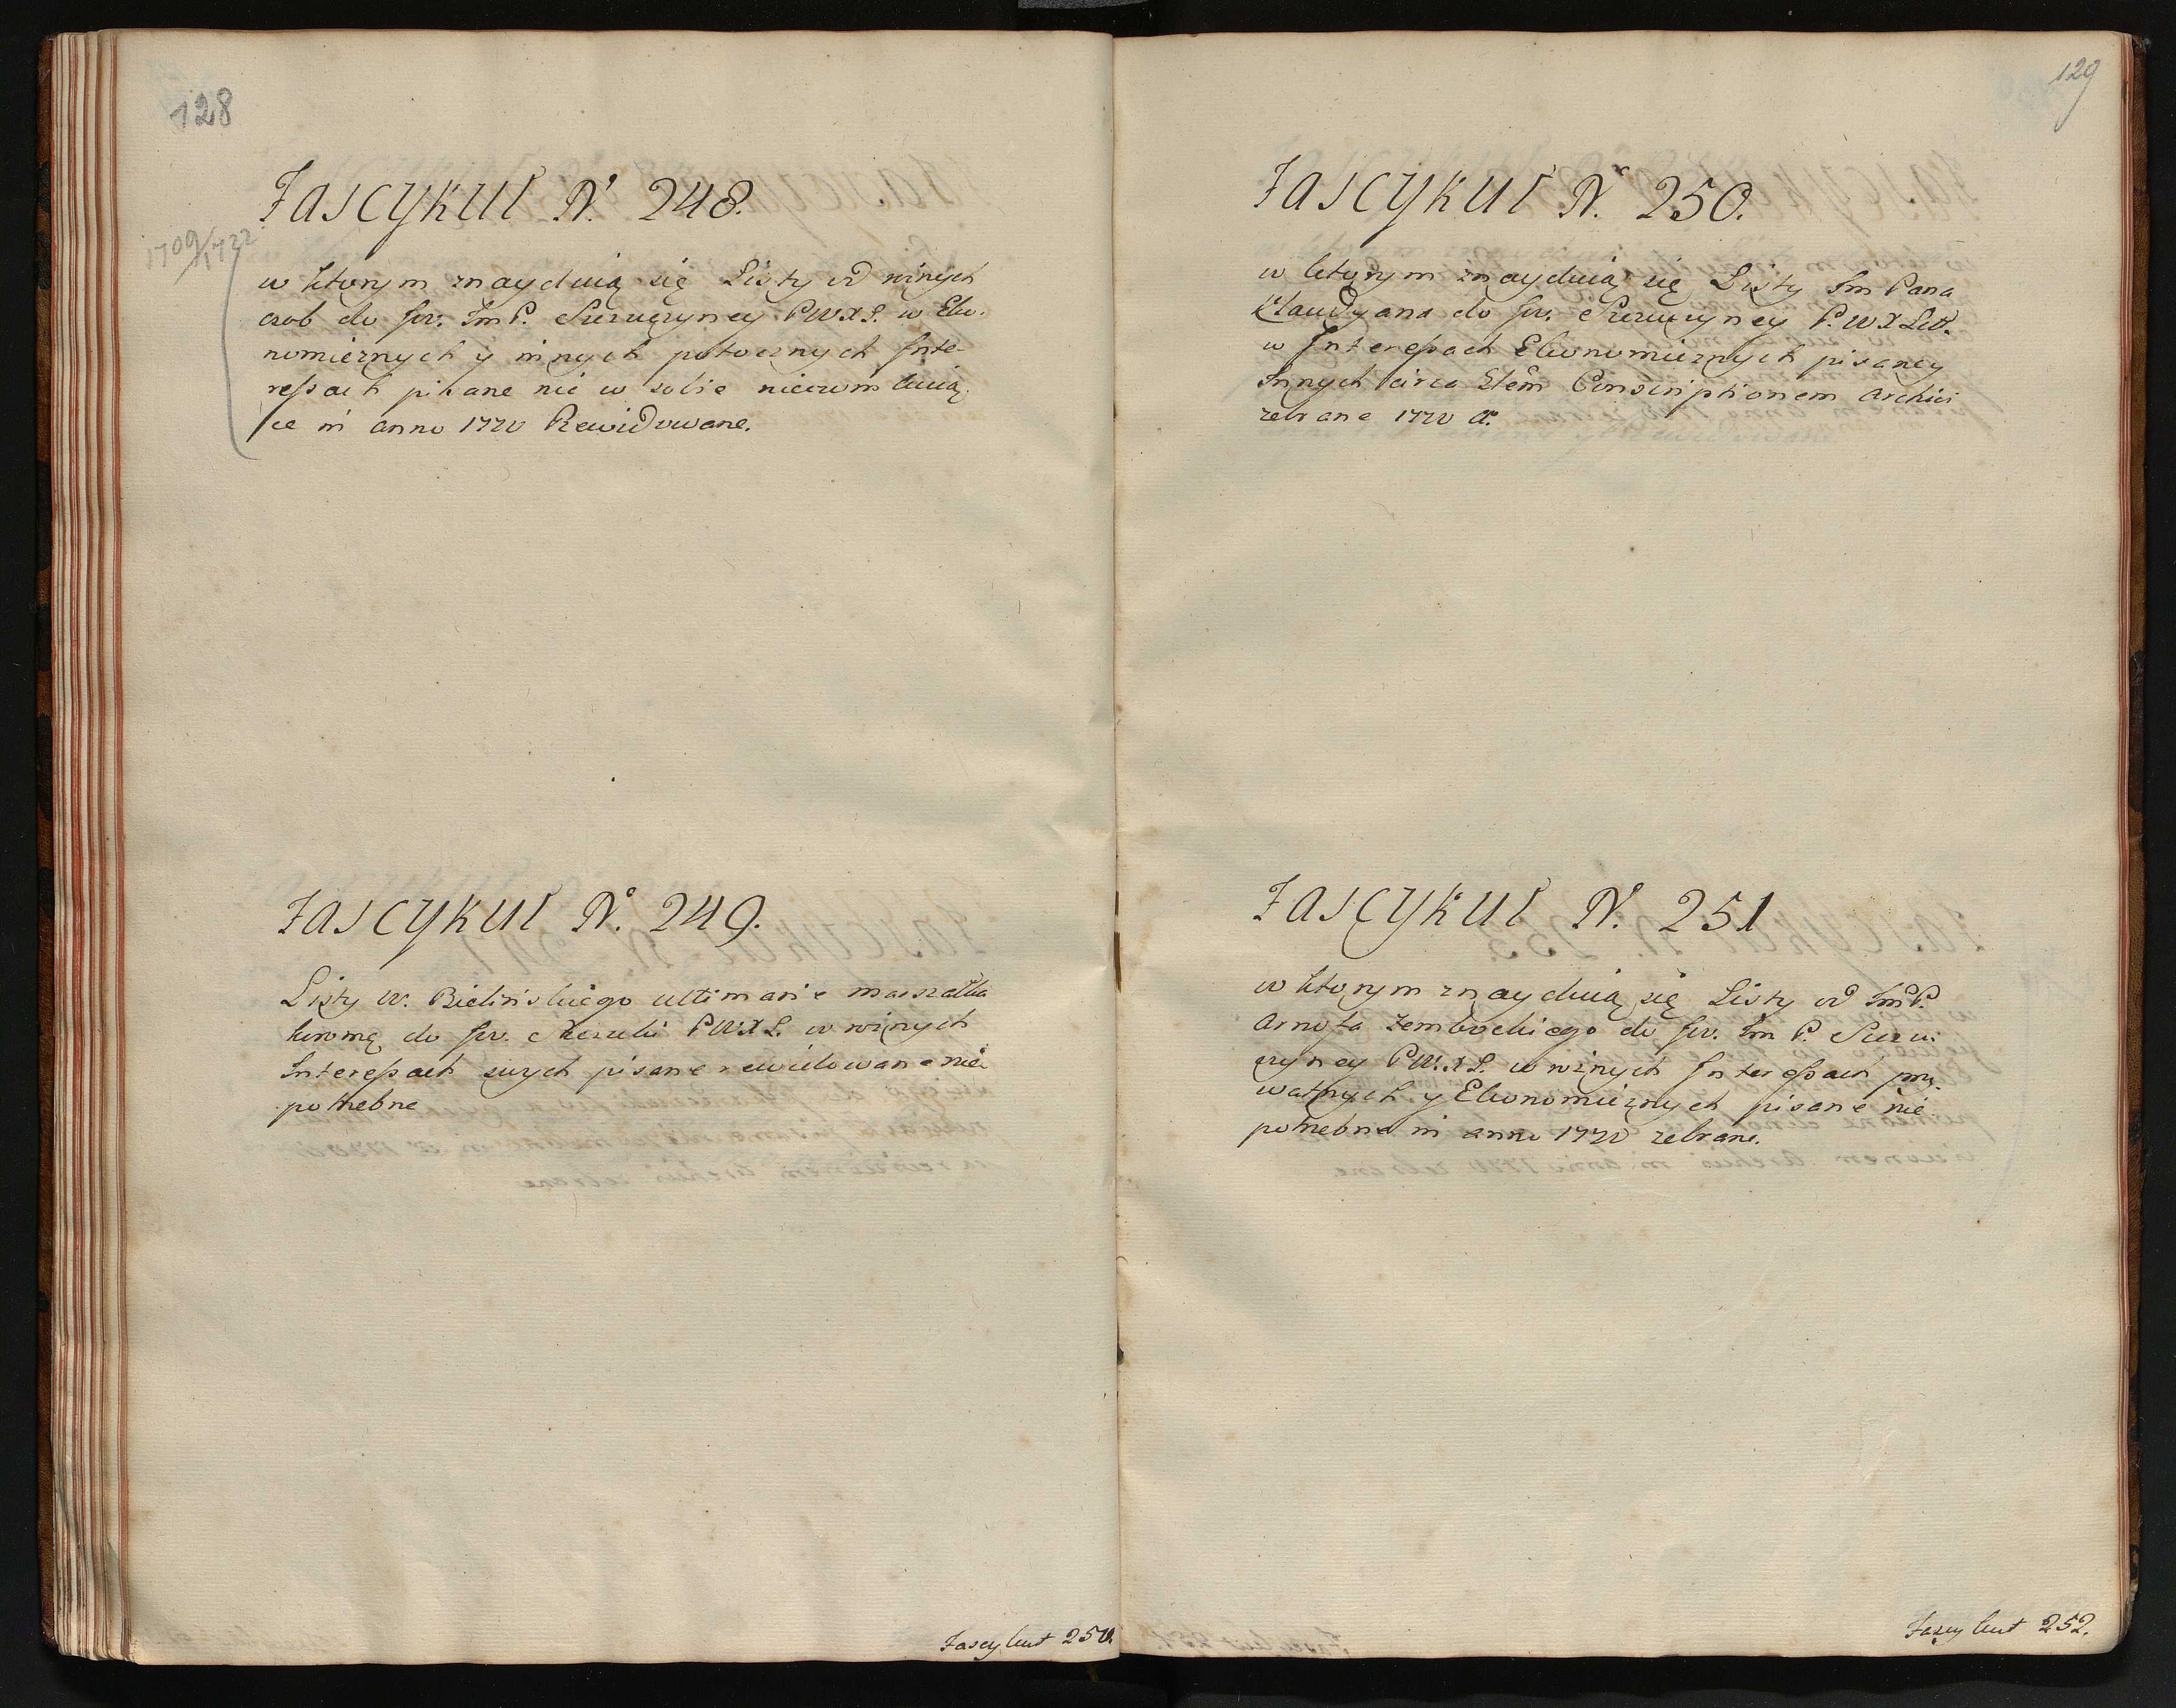 128
Fascykuł Nº. 248.
1709/1722
w ktorym znayduią się Listy od rożnych
osob do św. Im P. Szczuczyney P.W.X.L. w Eko-
nomicznych y innych potocznych Inte-
ressach pisane nic w sobie niezamikaią
ce in anno 1770 Rewidowane.
Fascykuł Nº. 249.
Listy w. Bielińskiego ultimarie marszałka
koronnę do św. Szczuki P.W.X.L. w rożnych
Interessach swych pisane rewidowane nie
potrzebne
Fascykuł 250.
129
Fascykuł Nr. 250.
w ktorym znayduią się Listy Im Pana
Klaudyana do św. Szczuczyney P.W.X.Litt.
w Interessach Ekonomicznych pisaney
Innych circa Conscriptionem Archivi
zebrane 1770 A.
Fascykuł N. 251
w ktorym znayduią się Listy od Im P.
Zembockiego do św. Im P. Szczu-
czyney P.W.X.L. w rożnych Interessach pry-
watnych y Ekonomicznych pisane nie
potrzebne in anno 1770 zebrane.
Fascykuł 252.